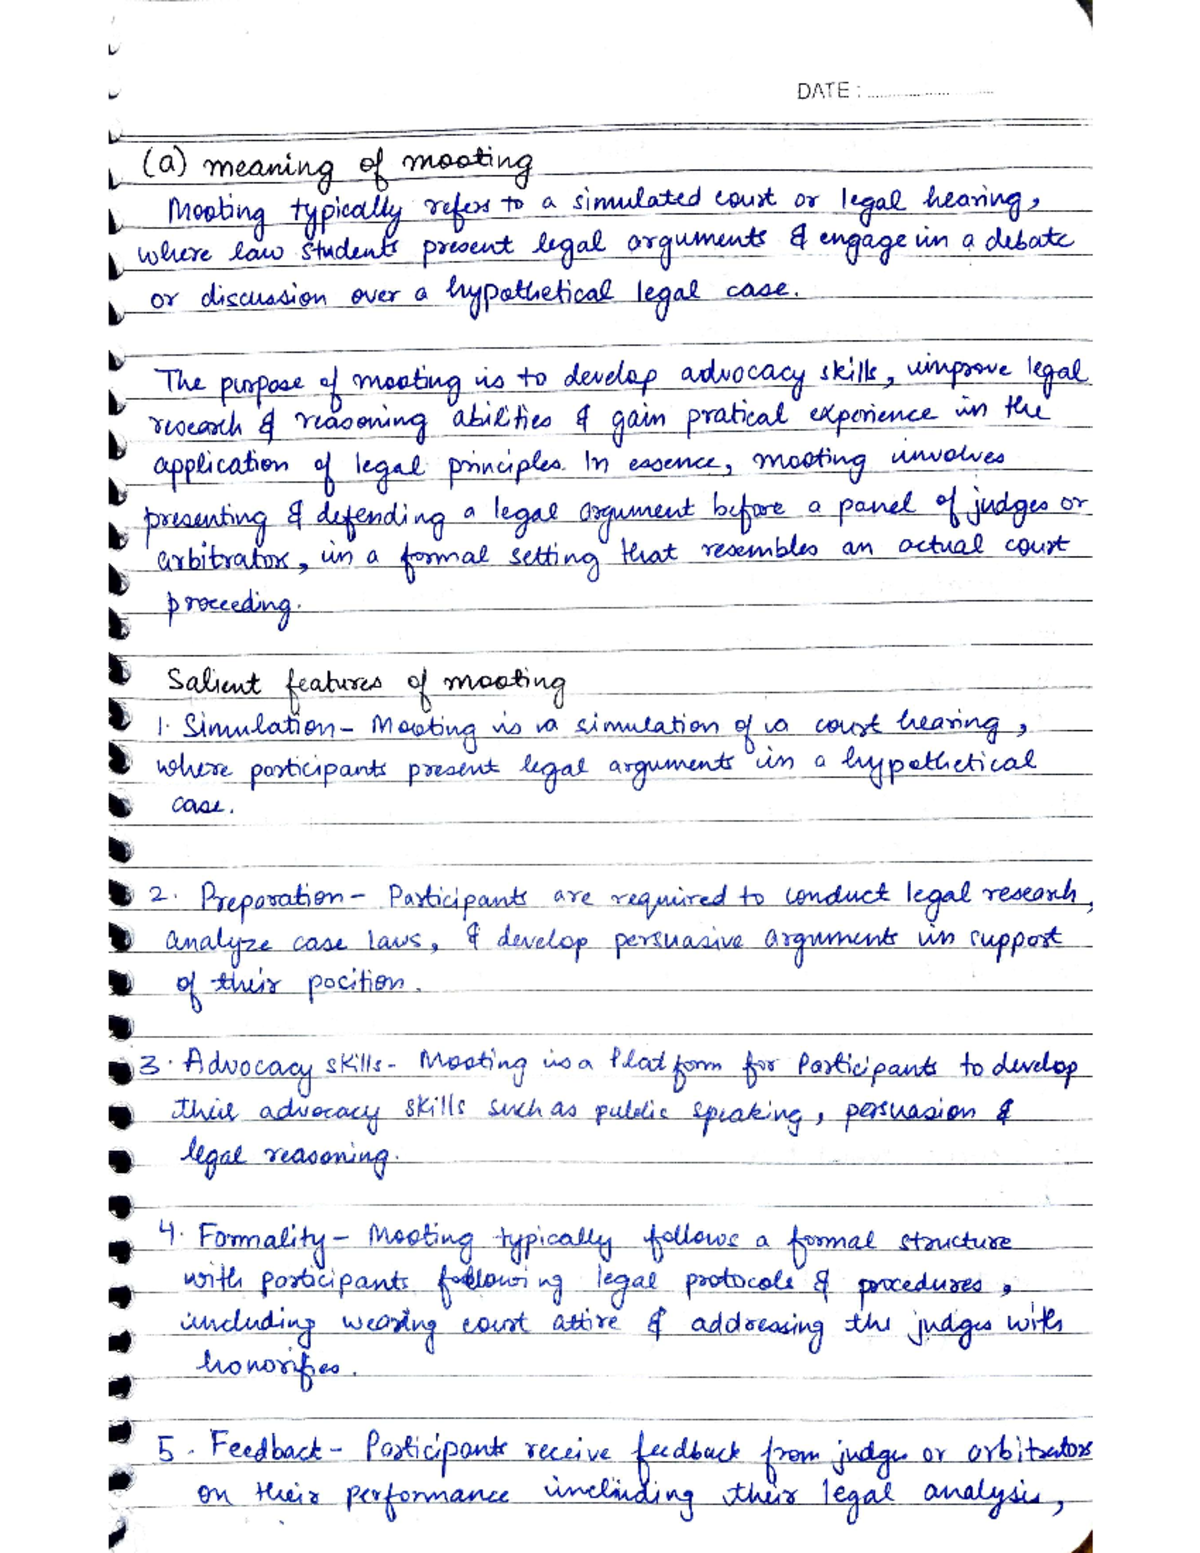 DATE :
(a) meaning of mooting
Mooting typically refers to a simulated court or legal hearing,
where law students present legal arguments & engage in a debate
or discussion over a hypothetical legal case.
The purpose of mooting is to develop advocacy skills, improve legal
research & reasoning abilities & gain pratical experience in the
application of legal principles. In essence, mooting involves
presenting & defending a legal argument before a panel of judges or
arbitrators, in a formal setting that resembles an actual court
proceeding.
Salient features of mooting
1. Simulation - Mooting is a simulation of a court hearing,
where participants present legal arguments in a hypothetical
case.
2. Preparation - Participants are required to conduct legal research,
analyze case laws, & develop persuasive arguments in support
of their position.
3. Advocacy skills - Mooting is a Platform for Participants to develop
their advocacy skills such as public speaking, persuasion &
legal reasoning.
4. Formality - Mooting typically follows a formal structure
with participants following legal protocols & procedures,
including wearing court attire & addressing the judges with
honorifics.
5. Feedback - Participants receive feedback from judges or arbitrators
on their performance including their legal analysis,